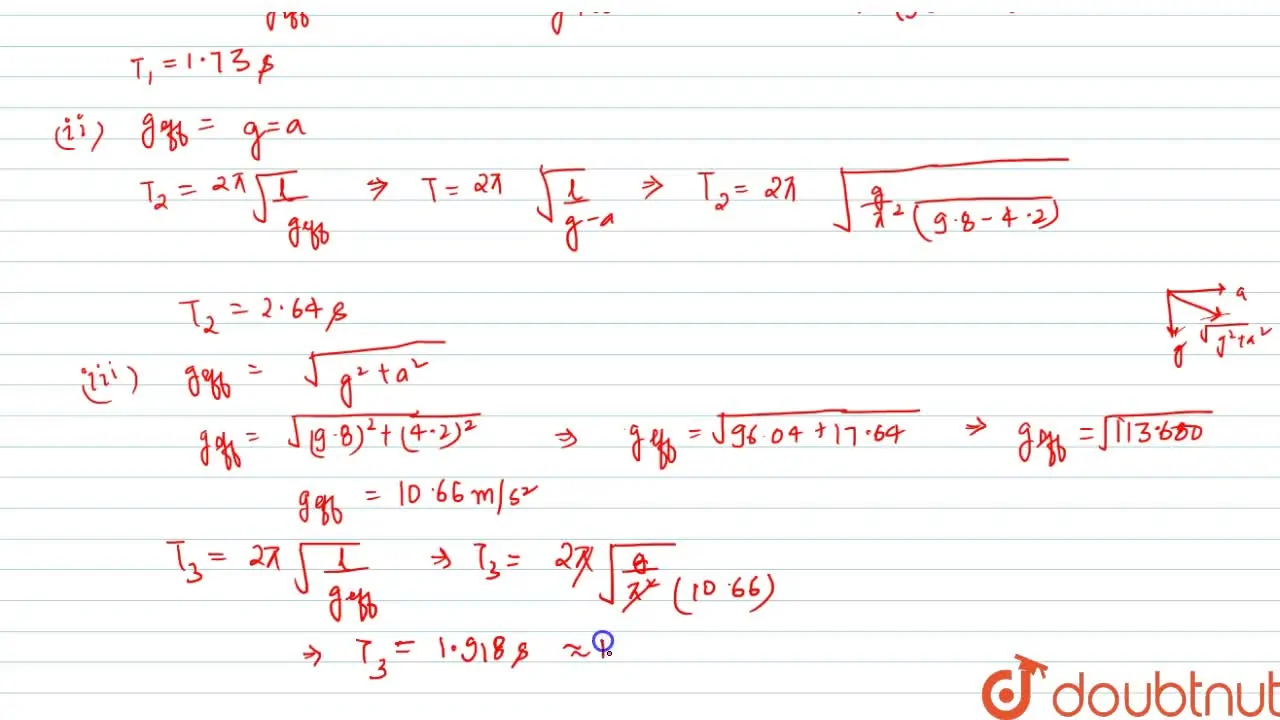 T₁ = 1.73 s
(ii) g eff = g=a
T₂ = 2π √(l / g eff) ⇒ T = 2π √(l / g-a) ⇒ T₂ = 2π √(g / π² (9.8 - 4.2))
T₂ = 2.64 s
a
g √g²+a²
(iii) g eff = √g² + a²
g eff = √(9.8)² + (4.2)² ⇒ g eff = √96.04 + 17.64 ⇒ g eff = √113.680
g eff = 10.66 m/s²
T₃ = 2π √(l / g eff) ⇒ T₃ = 2π √(g / π² (10.66))
⇒ T₃ = 1.918 s ≈ 1.
doubtnut